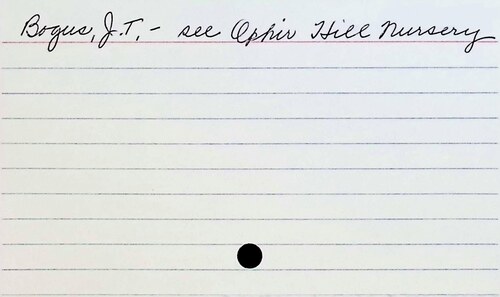 Bogus, J.T. - see Ophir Hill Nursery